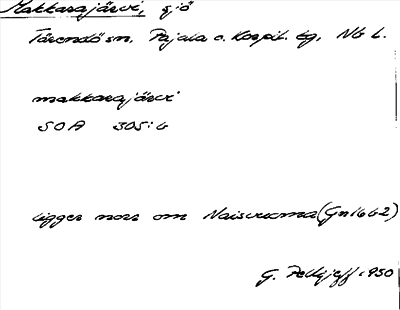 Makkarajärvi, sjö
Tärendö sn, Pajala o. Korpil. tg, Nb l.
makkarajärvi
SOA 305:6
ligger norr om Naisvuoma (Gn 1662)
G. Pellijeff 1950